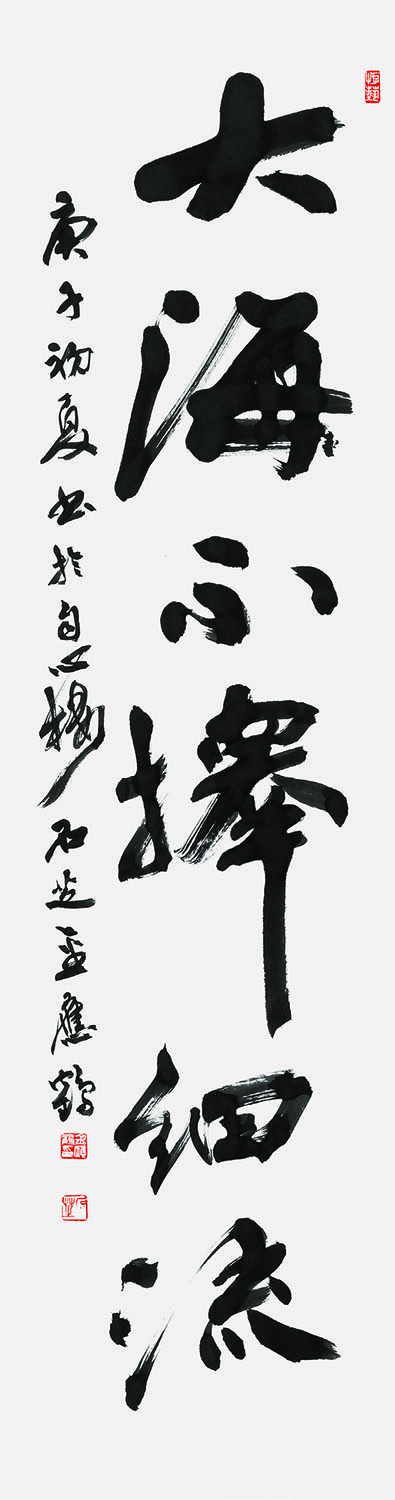 大海不择细流
庚子初夏书于自心楼 石芝 孟应鹤